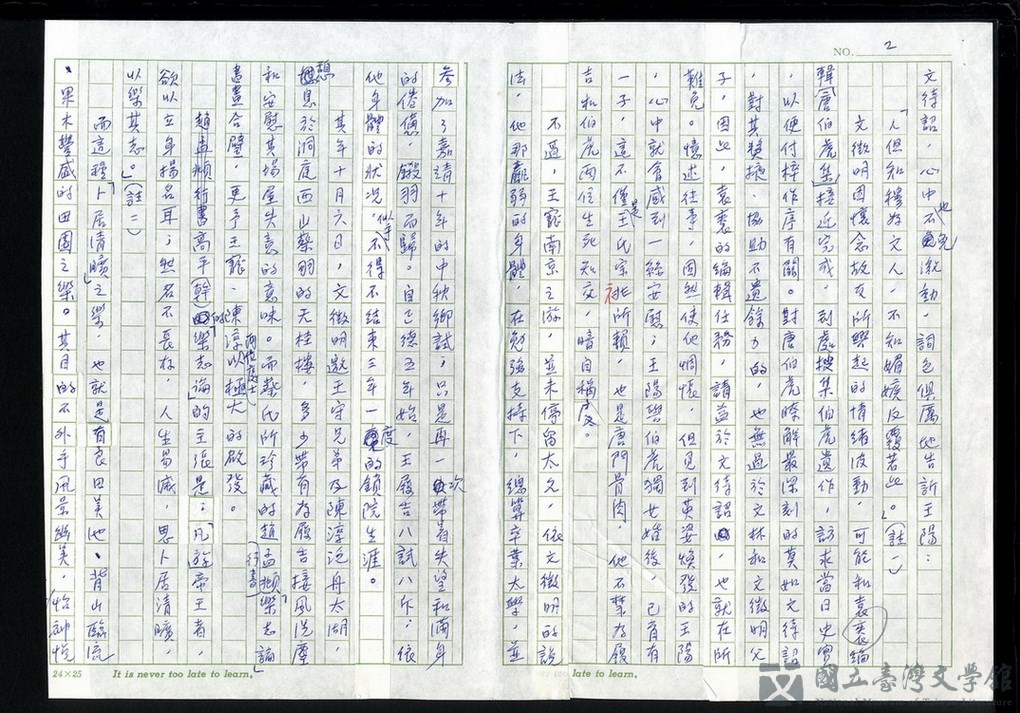 NO. 2
文待詔，心中也不免激動，詞色俱厲地告訴王陽：
「人俱知穫好文人，不知媚嫉反覆若此。」(註一)
文徵明因懷念故友所興起的情緒波動，可能和袁袠編
輯「唐伯虎集」接近完成，到處搜集伯虎遺作，訪求當日史實
，以便付梓作序有關。對唐伯虎瞭解最深刻的莫如文待詔
，對其獎掖、協助不遺餘力的，也無過於文林和文徵明父
子，因此，袁袠的編輯任務，請益於文待詔，也就在所
難免。憶述往事，固然使他惆悵，但見到英姿煥發的王陽
，心中就會感到一絲安慰；王陽與伯虎獨女婚後，已有
一子，這不僅是王氏宗祧所賴，也是唐門骨肉，他不禁為履
吉和伯虎兩位生死知交，暗自稱慶。
不過，王寵南京之游，並未停留太久，依文徵明的說
法，他那羸弱的身體，在勉強支持下，總算卒業太學，並
參加了嘉靖十年的中秋鄉試，只是再一次帶著失望和滿身
的倦憊，鎩羽而歸。自正德五年始，王履吉八試八斥；依
他身體的狀況，似乎不得不結束三年一度的鎖院生涯。
其年十月六日，文徵明邀王守兄弟及陳淳泛舟太湖，
想息於洞庭西山蔡羽的天桂樓，多少帶有為履吉接風洗塵
和安慰其場屋失意的意味。而蔡氏所珍藏的趙孟頫行書「樂志論」
書畫合璧，更予王寵、陳淳兩位處士以極大的啟發。
趙孟頫行書高平(幹)的「樂志論」的主張是：「凡游帝王者，
欲以立身揚名耳；然名不長存，人生易滅，思卜居清曠，
以樂其志。」(註二)
而這種「卜居清曠」之樂，也就是有良田美地、背山臨流
、果木豐盛的田園之樂。其目的不外乎風景幽美，怡神悅
24×25 It is never too late to learn.
late to learn.
國立臺灣文學館
National Museum of Taiwan Literature